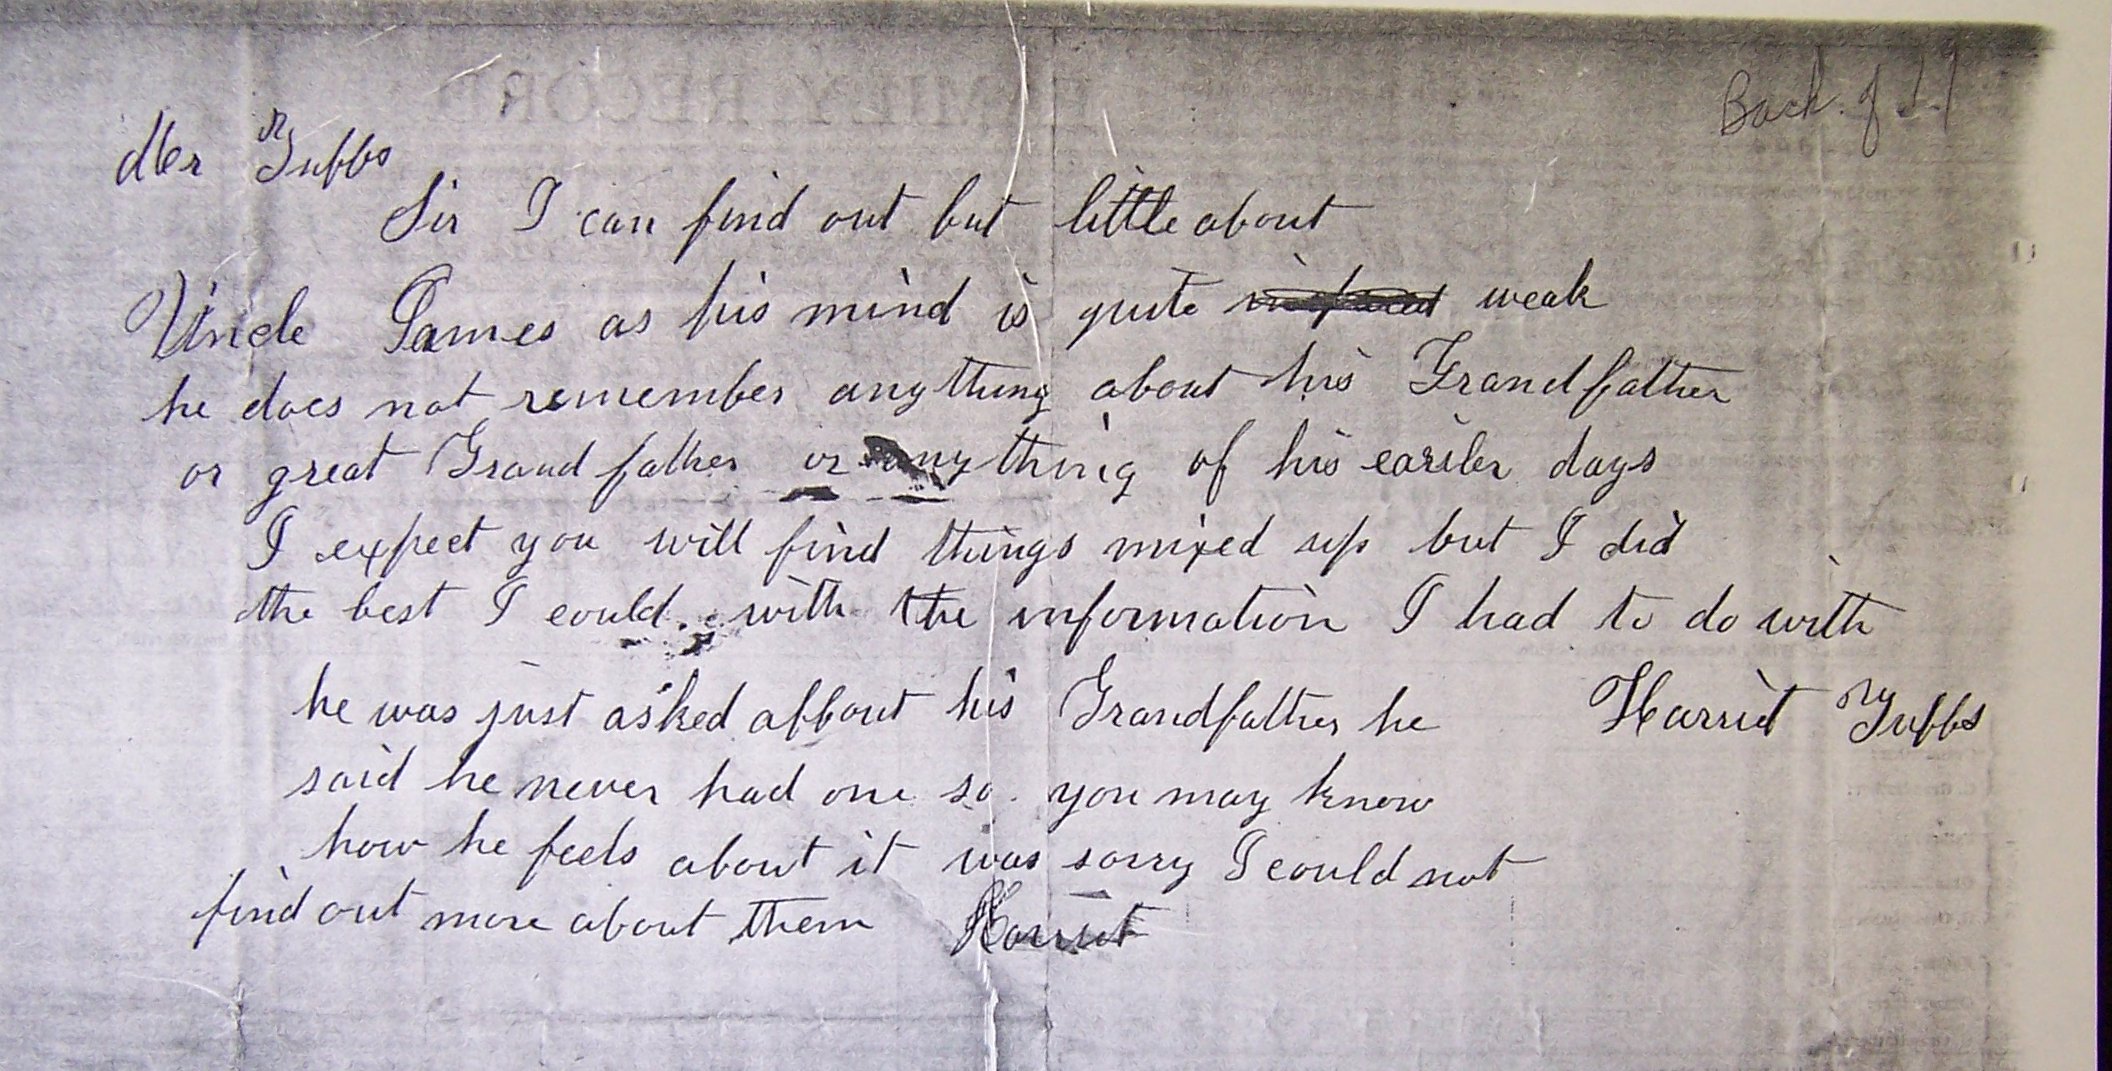 Back of
Mr Tubbs
Sir I can find out but little about
Uncle James as his mind is quite weak
he does not remember anything about his Grandfather
or great Grand father or any thing of his eariler days
I expect you will find things mixed up but I did
the best I could. with the information I had to do with
Harriet Tubbs
he was just asked about his Grandfather he
said he never had one so you may know
how he feels about it was sorry I could not
find out more about them Harriet
FAMILY RECORD